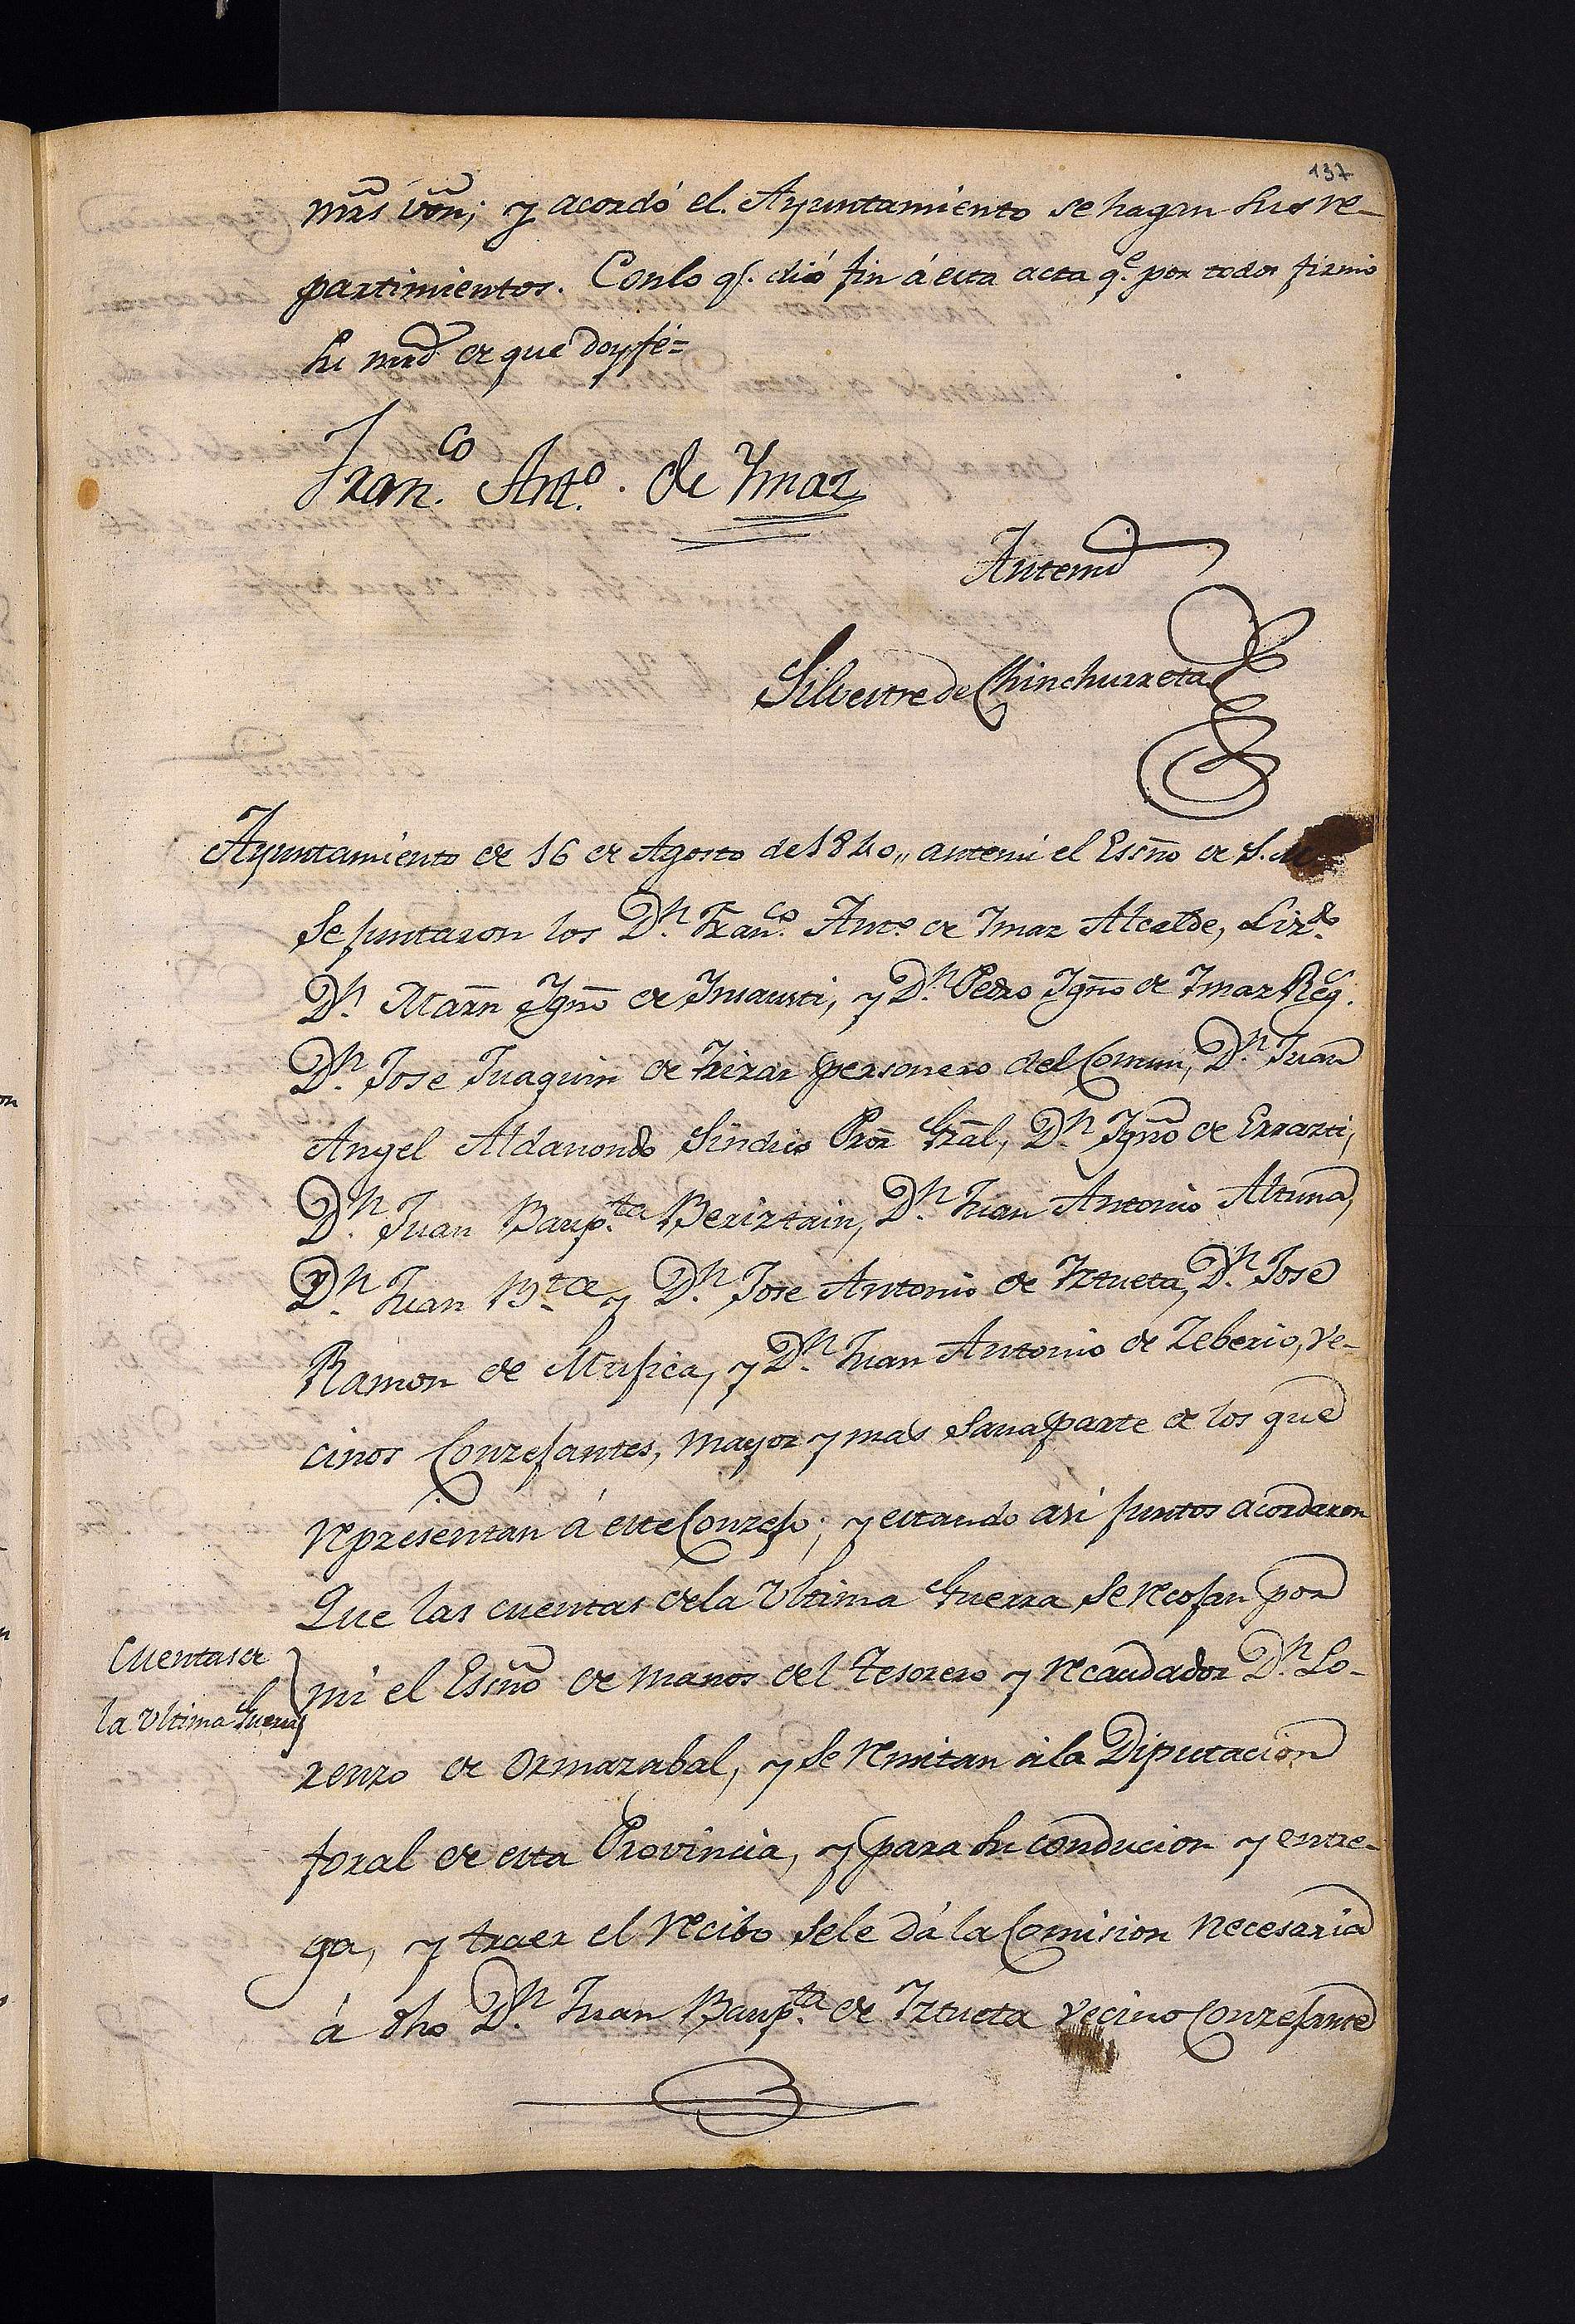 137
mrs von; y acordó el Ayuntamiento se hagan sus re-
partimientos. Con lo qe. dió fin á esta acta qe. por todos firmó
su mrd de que doy fé=
Franco. Anto. de Ymaz
Antemi
Silvestre de Chinchurreta
Ayuntamiento de 16 de Agosto de 1840,, antemi el Escno de S.
se juntaron los Dn. Franco. Anto. de Imaz Alcalde, Lizdo.
Dn. Marn Igno de Insausti, y Dn. Pedro Igno de Imaz Reg.
Dn. Jose Juaquin de Irizar personero del Comun, Dn. Juan
Angel Aldanondo Sindico Pror Gral, Dn. Igno de Errazti,
Dn. Juan Baupta. Beriztain, Dn. Juan Antonio Altuna,
Dn. Juan Btce y Dn. Jose Antonio de Iztueta, Dn. Jose
Ramon de Mujica, y Dn. Juan Antonio de Zeberio, ve-
cinos Conzejantes, mayor y mas sana parte de los que
representan á este Conzejo; y estando asi juntos acordaron
Que las cuentas de la Ultima Guerra se recojan por
Cuentas de
la Ultima Guerra
mi el Escno de manos del Tesorero y recaudador Dn. Lo-
renzo de Ormazabal, y se remitan á la Diputacion
foral de esta Provincia, y para su conducion y entre-
ga, y traer el recibo se le dá la Comision necesaria
á dho Dn. Juan Baupta. de Iztueta vecino Conzejante